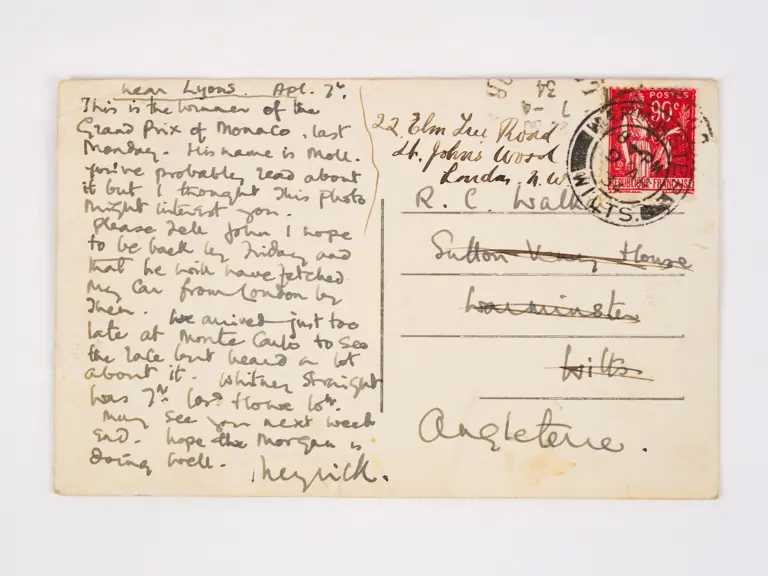 near Lyons. Apl. 7th.
This is the winner of the
Grand Prix of Monaco, last
Monday. His name is Moll.
you've probably read about
it but I thought this photo
might interest you.
Please tell John I hope
to be back by Friday and
that he will have fetched
my car from London by
then. We arrived just too
late at Monte Carlo to see
the race but heard a lot
about it. Whitney Straight
was 7th. Lord Howe 10th.
May see you next week
end. hope the Morgan is
doing well.
22. Elm Tree Road
St. John's Wood
London. N.W
R. C. Walk
Sutton Veny House
Warminster
Wilts
Angleterre.
POSTES
90c
REPUBLIQUE FRANÇAISE
WARMINSTER
WILTS.
7 -4
34